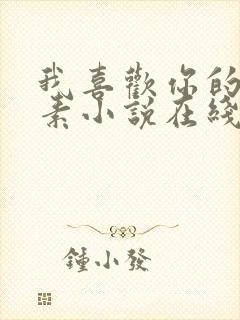 我喜歡你的
素小說在綫
鍾小發